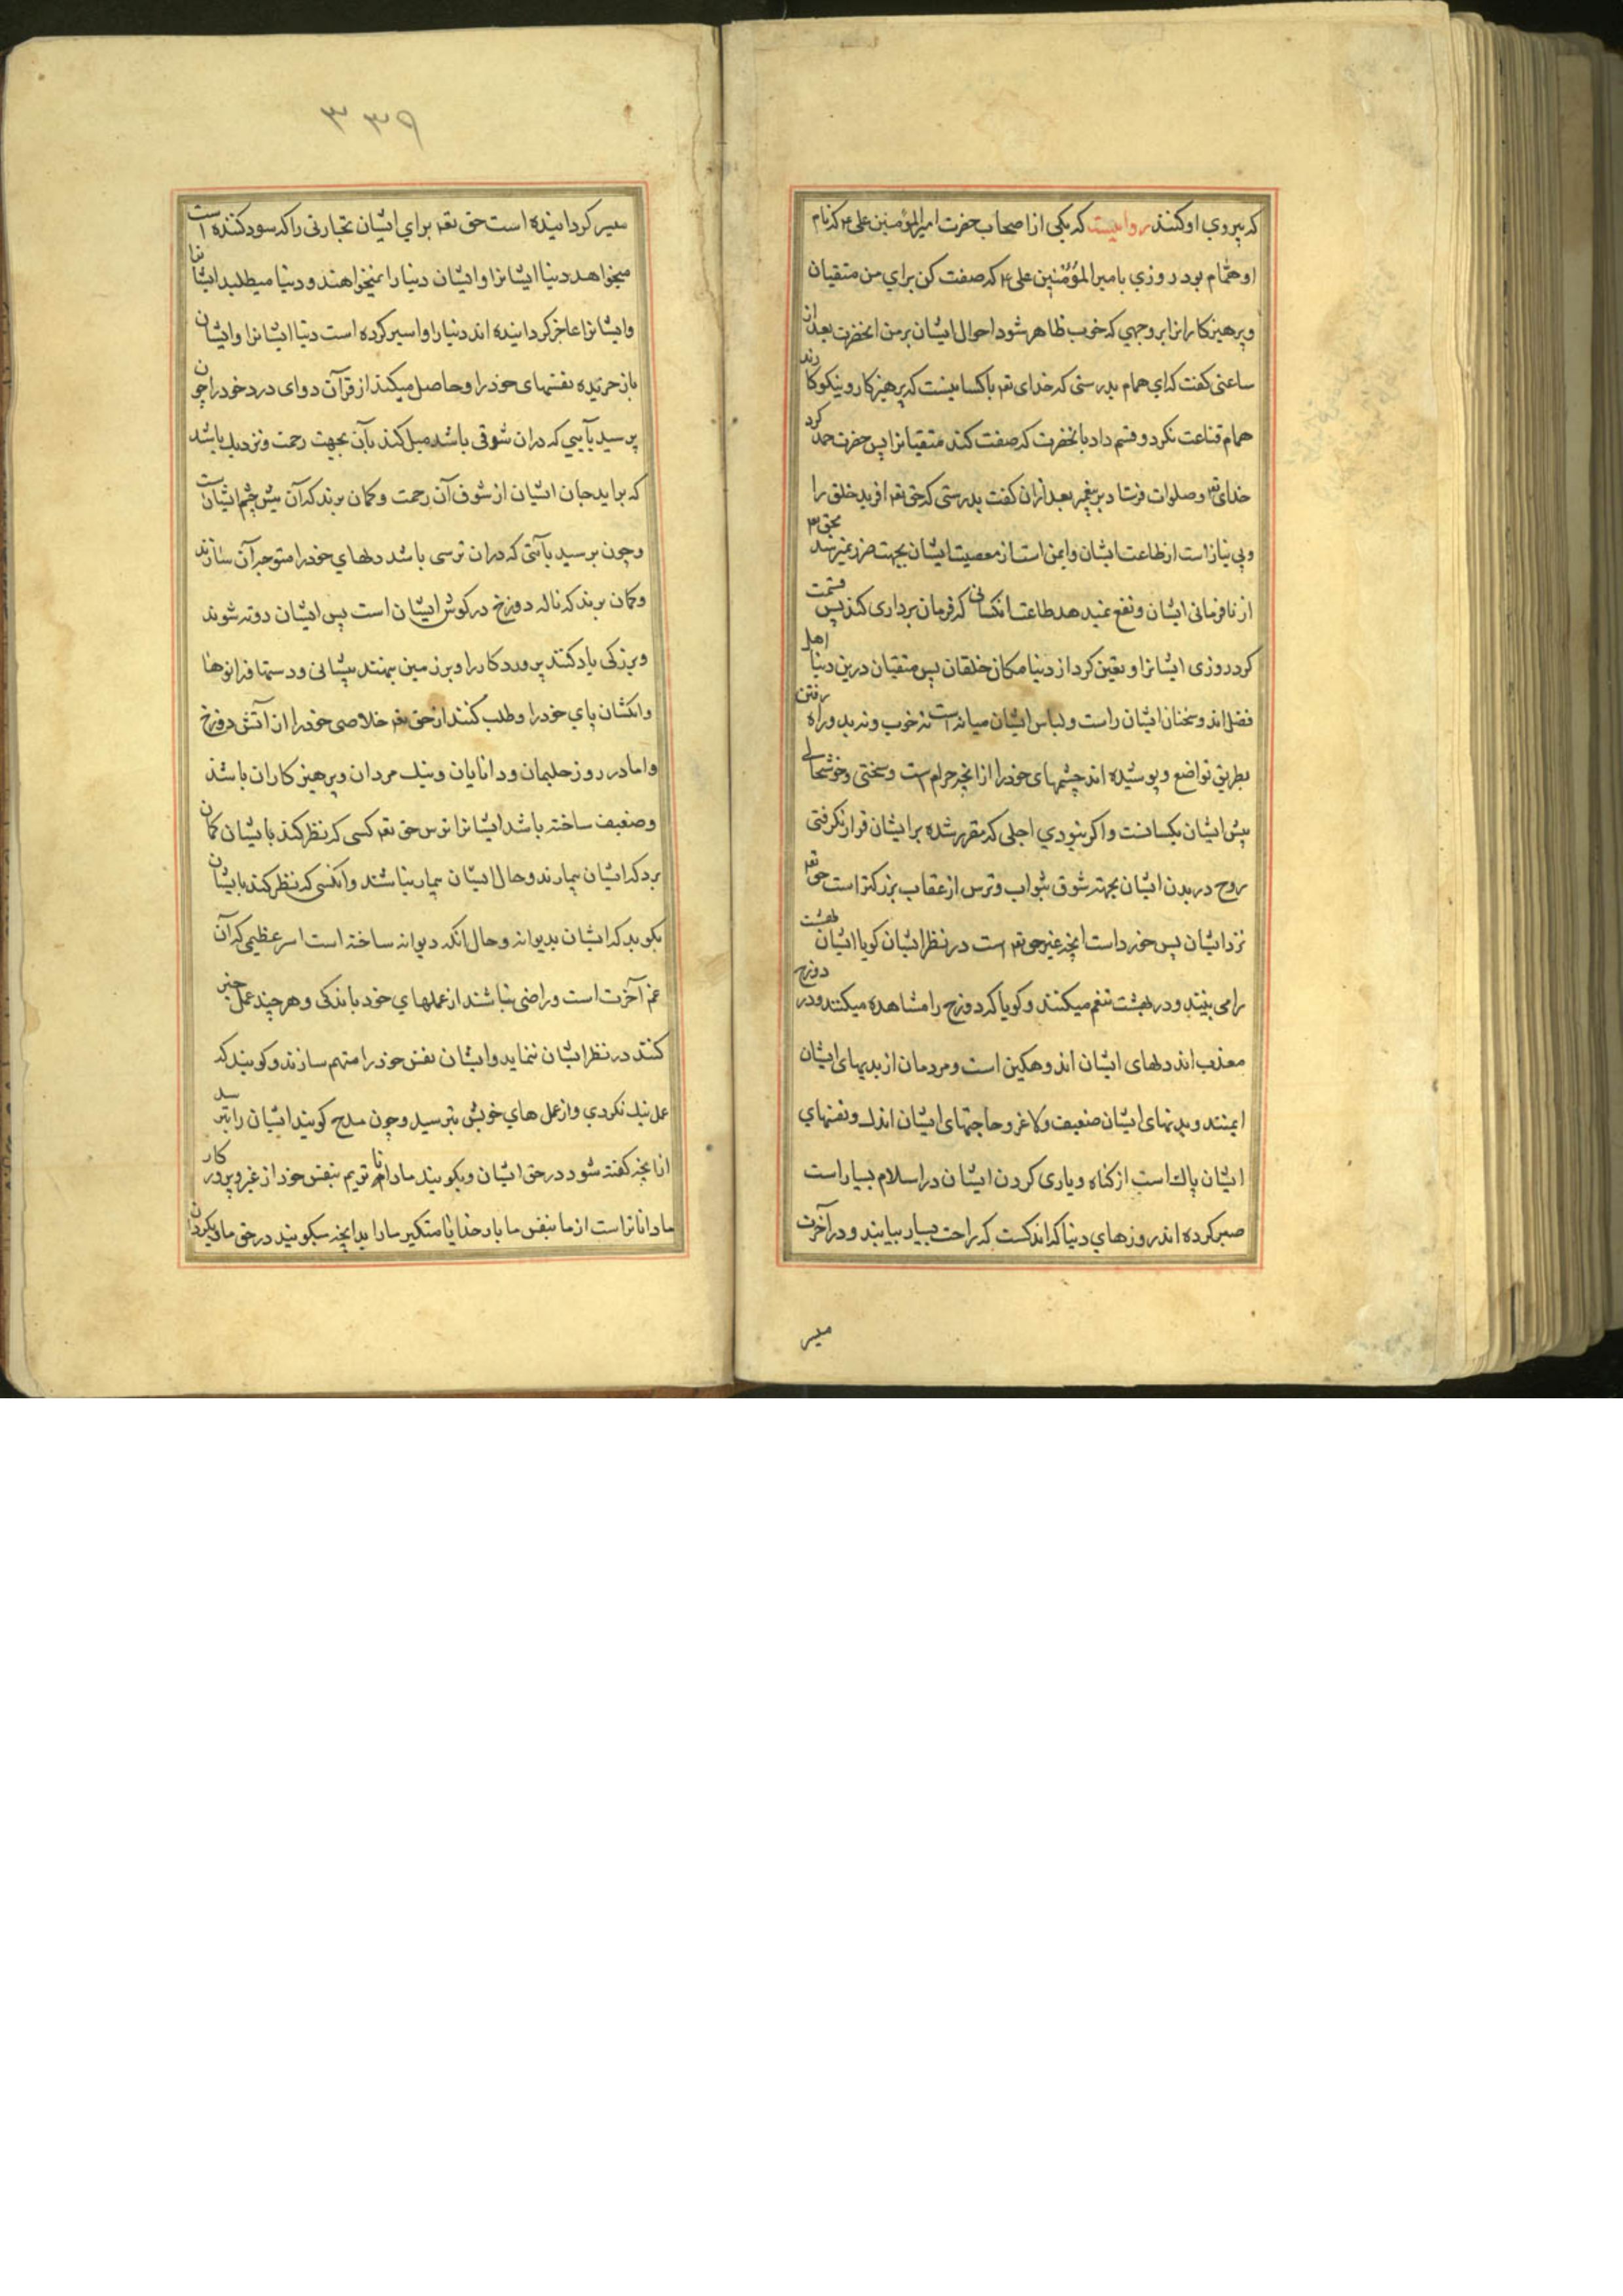 که پیروي او کنند روایتست که یکی از اصحاب حضرت امیرالمؤمنین علی ع که نام
او همّام بود روزي بامیر المؤمنین علی ع که صفت کن براي من متقیان
وپرهیزکارانرا بر وجهی که خوب ظاهر شود احوال ایشان بر من انحضرت بعد از
ساعتی کفت که ای همام بدرستی که خدای تع باکسانیست که پرهیزکار ونیکوکارند
همام قناعت نکرد وقسم داد بانحضرت که صفت کند متقیانرا پس حضرت حمد کرد
خدای تع وصلوات فرستاد بر پیغمبر بعد ازان کفت بدرستی که حق تع افرید خلق را
وبی نیاز است از طاعت ایشان وایمن است از معصیت ایشان بجهت ضرر نمیرسد بحق تع
از نافرمانی ایشان ونفع نمیدهد طاعت انکسانی که فرمان برداری کنند پس قسمت
کرد روزی ایشانرا و یقین کرد از دنیا مکان خلقان پس متقیان درین دنیا اهل
فضل اند وسخنان ایشان راست ولباس ایشان میانه است نه خوب ونه بد وراه رفتن
بطریق تواضع وپوشیده اند چشمهای خود را از انچه حرام است وسختی وخوشحالی
پیش ایشان یکسانست واکر نبودي اجلی که مقرر شده بر ایشان قرار نکرفتی
روح در بدن ایشان بجهته شوق بثواب وترس از عقاب بزرکتر است حق تع
نزد ایشان پس خورد است انچه غیر حق تع است در نظر ایشان کویا ایشان بهشت
را می بینند ودر بهشت تنعم میکنند وکویا که دوزخ را مشاهده میکنند ودر دوزخ
معذب اند دلهای ایشان اندوهکین است ومردمان از بدیهای ایشان
ایمنند وبدنهای ایشان ضعیف ولاغر وحاجتهای ایشان اندک ونفسهای
ایشان پاک است از کناه ویاری کردن ایشان در اسلام بسیار است
صبر کرده اند روزهاي دنیا که اندکست که راحت بسیار بیابند ودر آخرت
میسر
۳۳۹
میسر کردانیده است حق تع براي ایشان تجارتی را که سود کننده است
میخواهد دنیا ایشانرا وایشان دنیا را نمیخواهند ودنیا میطلبد ایشانرا
وایشانرا عاجز کردانیده اند دنیا را واسیر کرده است دنیا ایشانرا وایشان
باز خریده نفسهای خود را وحاصل میکنند از قرآن دوای درد خود را چون
برسید بآیتی که دران شوقی باشد میل کنند بآن بجهت رحمت ونزدیک باشد
که براید جان ایشان از شوق آن رحمت وکمان برند که آن پیش چشم ایشان است
وچون برسید بآیتی که دران ترسی باشد دلهاي خود را متوجه آن سازند
وکمان برند که ناله دوزخ در کوش ایشان است پس ایشان دوته شوند
وبزرکی یاد کنند پروردکار را وبر زمین نهند پیشانی ودستها وزانوها
وانکشتان پاي خود را وطلب کنند از حق تع خلاصی خود را از آتش دوزخ
واما در روز حلیمان ودانایان ونیک مردان وپرهیزکاران باشند
وضعیف ساخته باشد ایشانرا ترس حق تع کسی که نظر کند بایشان کمان
برد که ایشان بیمارند وحال ایشان بیمار نباشند وانکسی که نظر کند بایشان
بکوید که ایشان دیوانه وحال انکه دیوانه ساخته است امر عظیمی که آن
غم آخرت است وراضی نباشند از عملهاي خود باندکی وهر چند عمل خیر
کنند در نظر ایشان ننماید وایشان نفس خود را متهم سازند وکویند که
عمل نیک نکردي واز عمل هاي خویش بترسید وچون مدح کویند ایشان را بترسد
از انچه کفته شود در حق ایشان وبکویند ما داناتریم بنفس خود از غیر وپروردکار
ما داناتر است از ما بنفس ما بار خدایا متکیر ما را بدانچه میکویند در حق ما وبکردان